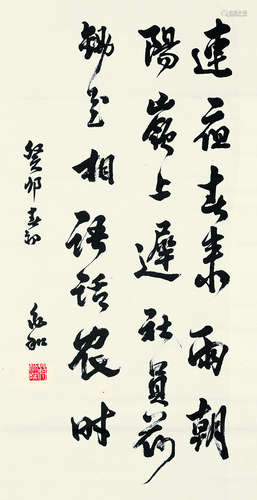 連夜春来雨朝
陽嶺上遲社員荷
鋤至相語話农时
癸卯春初